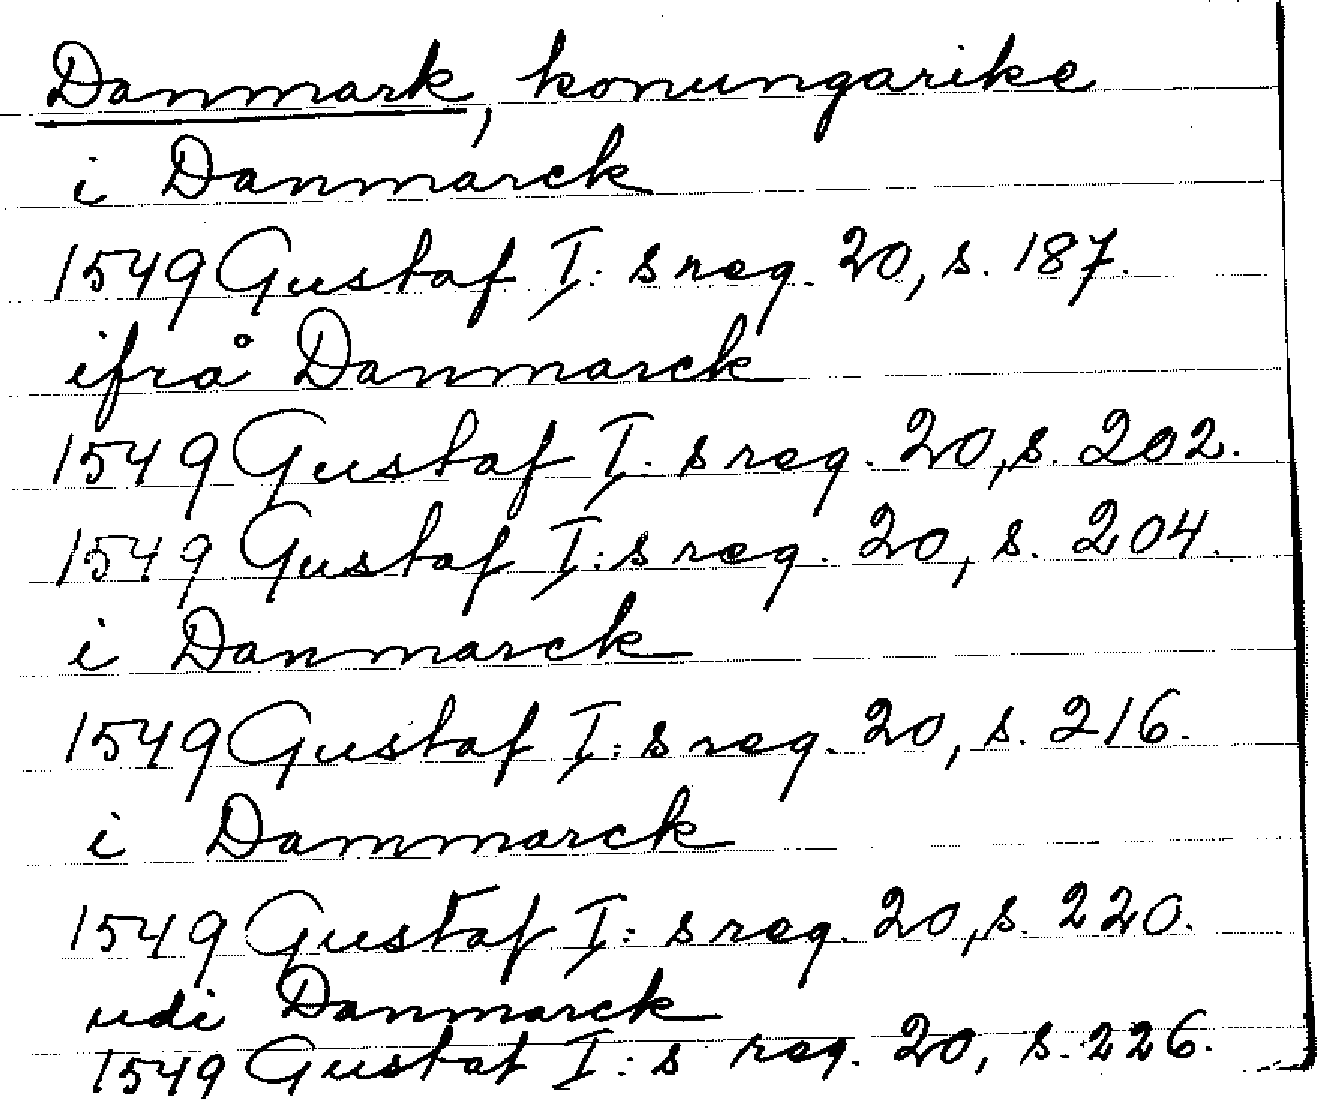 Danmark, konungarike
i Danmarck
1549 Gustaf I: s reg. 20, s. 187.
ifrå Danmarck
1549 Gustaf I: s reg. 20, s. 202.
1549 Gustaf I: s reg. 20, s. 204.
i Danmarck
1549 Gustaf I: s reg. 20, s. 216.
i Danmarck
1549 Gustaf I: s reg. 20, s. 220.
udi Danmarck
1549 Gustaf I: s reg. 20, s. 226.